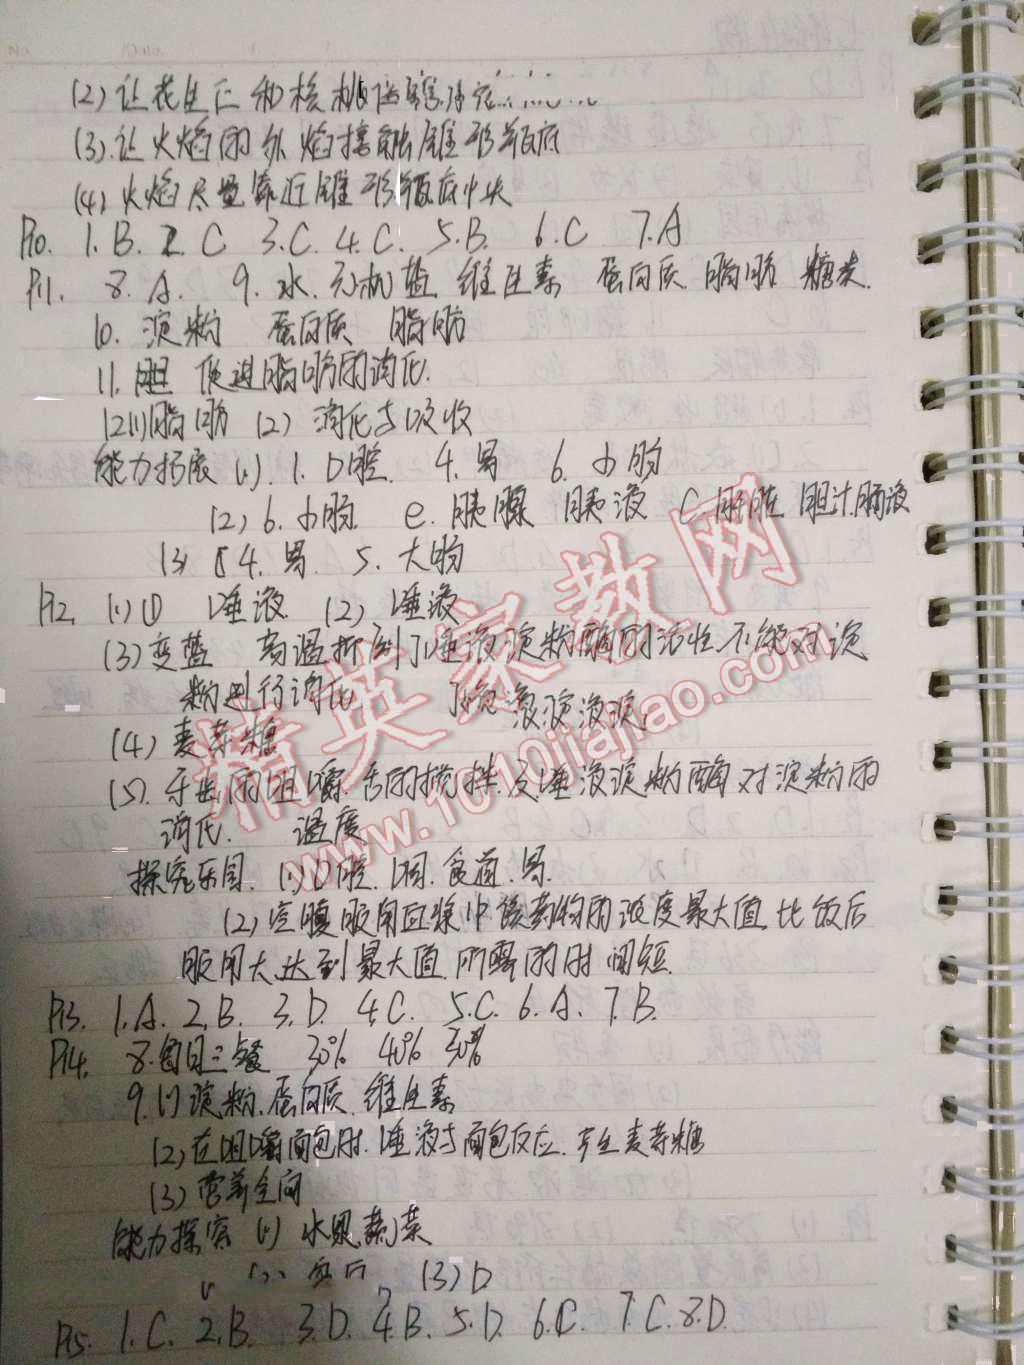 (2) 让花生仁和核桃仁
(3) 让火焰的外焰接触锥形瓶底
(4) 火焰尽量靠近锥形瓶底中央
P10. 1.B. 2.C 3.C. 4.C. 5.B. 6.C 7.A
P11. 8.A. 9.水.无机盐 维生素 蛋白质 脂肪 糖类.
10. 淀粉 蛋白质 脂肪
11. 胆 促进脂肪的消化.
12(1)脂肪 (2) 消化与吸收
能力拓展 (1). 1.口腔. 4.胃 6.小肠
(2) 6.小肠. e.胰腺 胰液 C.肝脏 胆汁.肠液
(3) 4.胃. 5.大肠
P12. (1)① 唾液 (2) 唾液
(3)变蓝 高温 了唾液淀粉酶的活性不能对淀
粉进行消化
(4) 麦芽糖
(5). 牙齿的咀嚼.舌的搅拌.及唾液淀粉酶对淀粉的
消化. 温度
探究乐园. (1)口腔.咽.食道.胃.
(2)空腹服用血浆中该药物的浓度最大值比饭后
服用大.达到最大值所需的时间短.
P13. 1.A. 2.B. 3.D. 4.C. 5.C. 6.A. 7.B.
P14. 8.每日三餐 30% 40% 30%
9.(1)淀粉.蛋白质.维生素
(2)在咀嚼面包时.唾液与面包反应.产生麦芽糖
(3)营养全面
能力探究 (1) 水果.蔬菜
(3) D
P15. 1.C. 2.B. 3.D. 4.B. 5.D. 6.C. 7.C. 8.D.
精英家教网
www.1010jiajiao.com